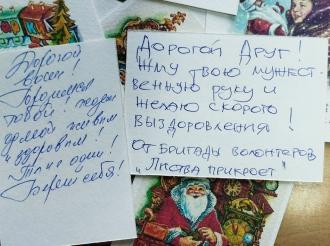 Дорогой
воин!
Гордимся
тобой! Ждём
домой живым
и здоровым!
Ты не один!
Береги себя!
Дорогой Друг!
Жму твою мужест-
венную руку и
желаю скорого
выздоровления!
От бригады волонтеров
"Листва прикроет"